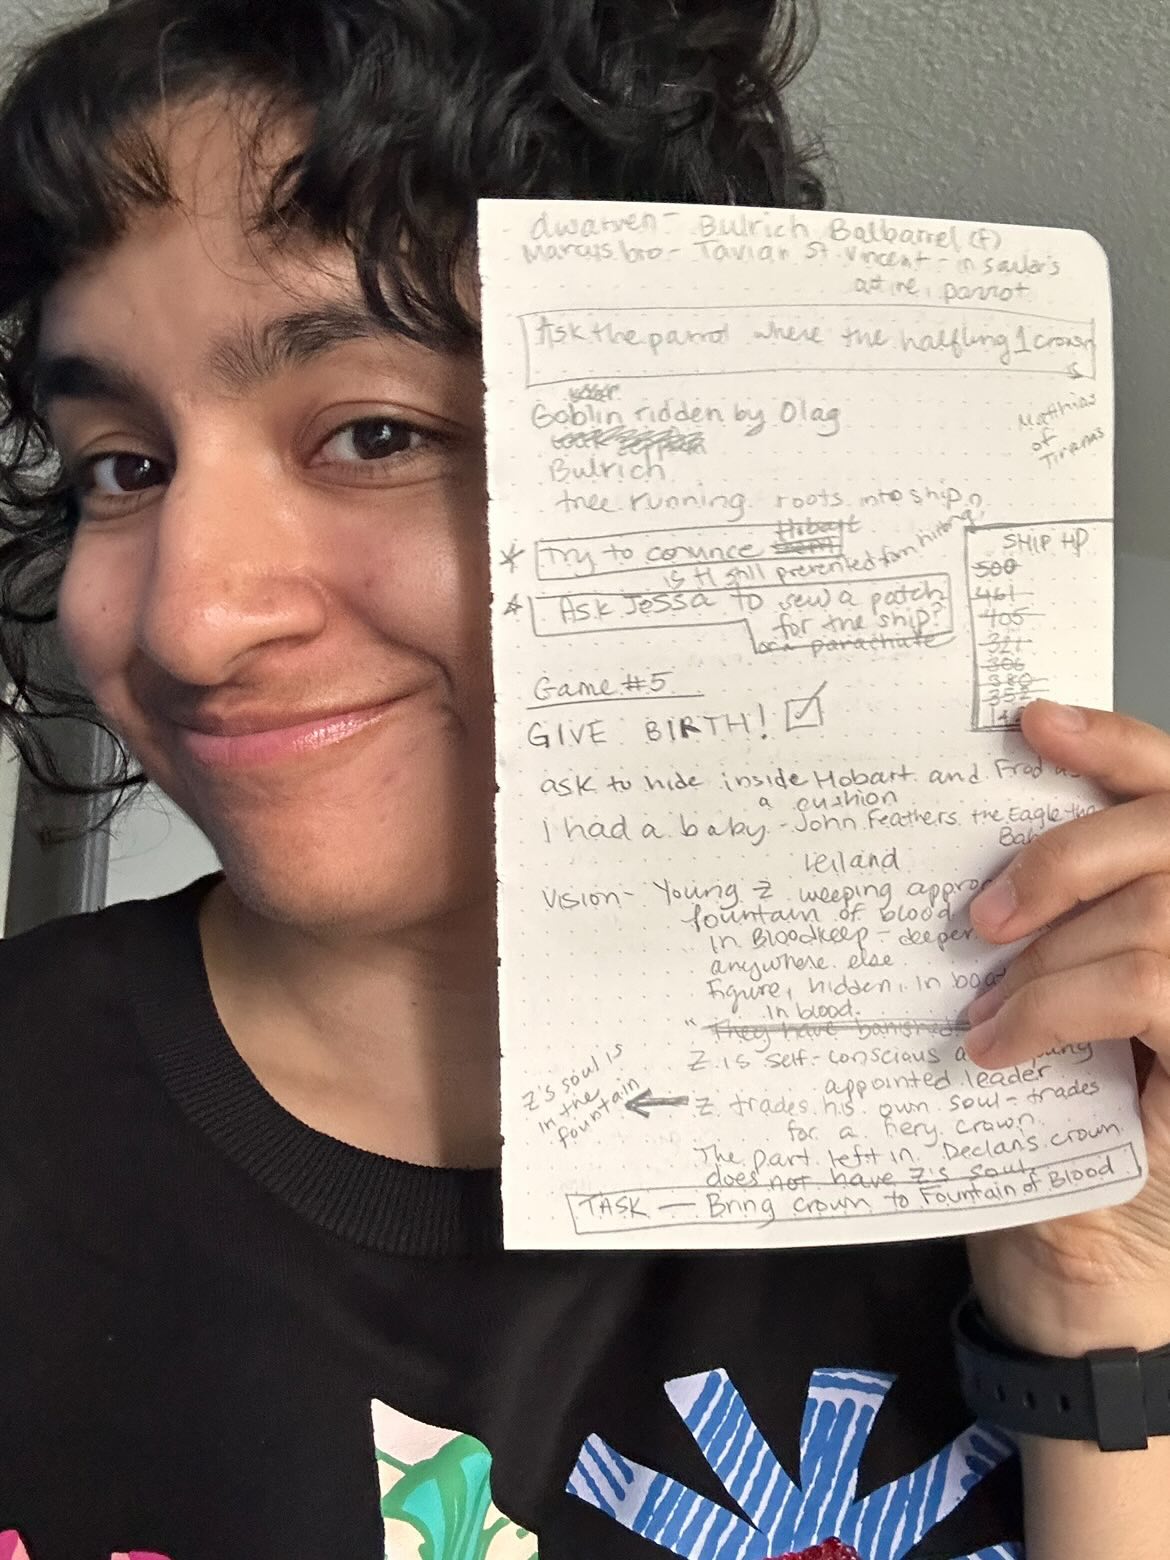 dwarven - Bulrich Balbarrel (f)
Marcus bro - Tavian St. Vincent - in sailor's
attire, parrot
Ask the parrot where the halfling 1 crown
is
Goblin ridden by Olag
Matthias
of
Bulrich
tree running roots into ship
Hobart
* Try to convince
is H still prevented from hitting?
* Ask Jessa to sew a patch
for the ship?
or a parachute
SHIP HP
500
461
405
321
306
380
Game #5
GIVE BIRTH! ☑
ask to hide inside Hobart and Frod as
a cushion
I had a baby - John Feathers the Eagle the
Leiland
Vision - Young Z weeping
fountain of blood
in Bloodkeep - deeper
anywhere else
figure, hidden, in
in blood.
"They have banished
Z is self-conscious young
appointed leader
Z's soul is
in the
fountain
← Z trades his own soul - trades
for a fiery crown
The part left in Declan's crown
does not have Z's soul
TASK — Bring crown to Fountain of Blood